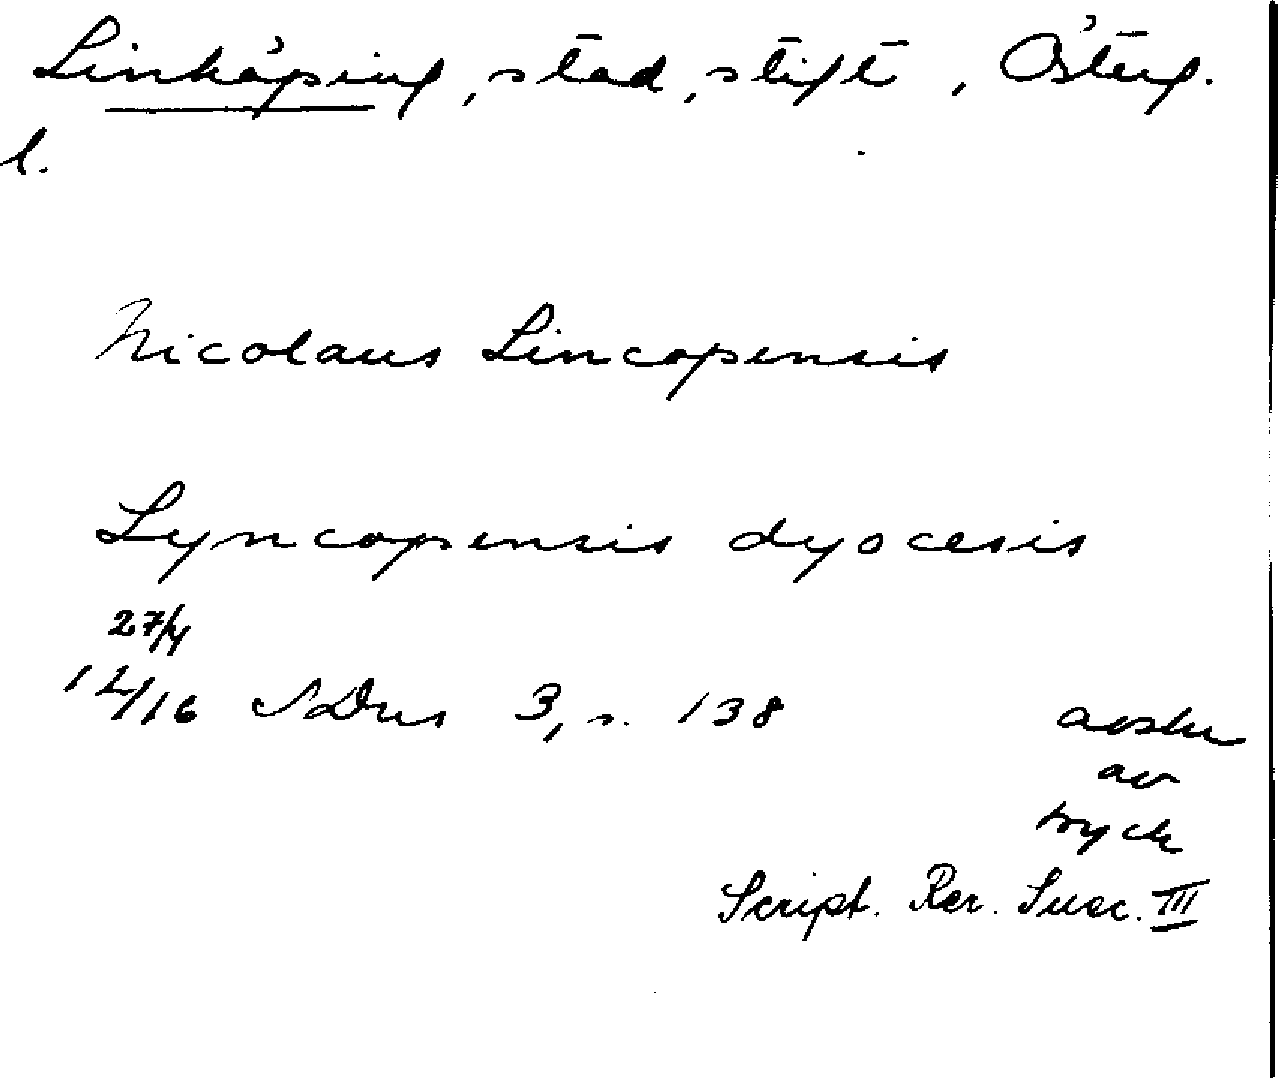 Linköping, stad, stift, Österg.
l.
Nicolaus Lincopensis
Lyncopensis dyocesis
27/4
1416 SDns 3, s. 138 avskr
av
tryck
Script. Rer. Suec. III